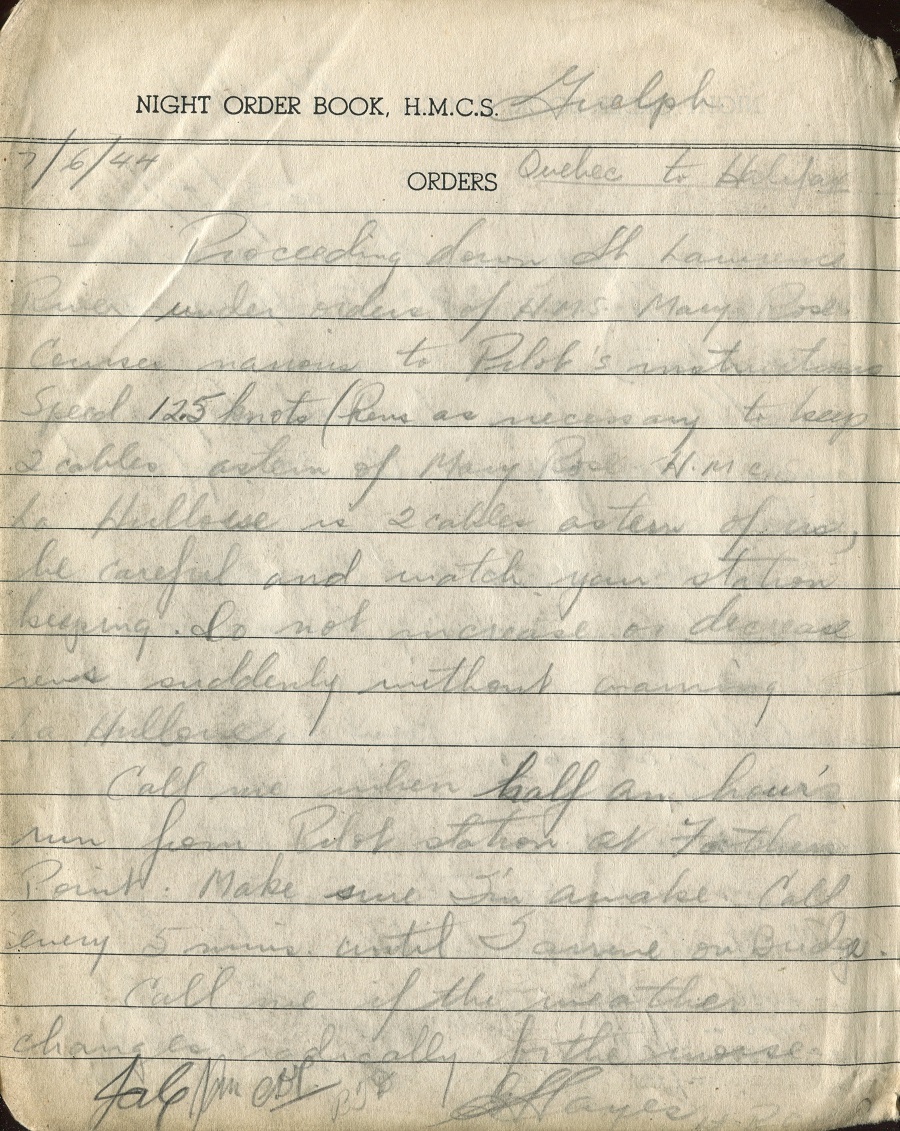 NIGHT ORDER BOOK, H.M.C.S. Guelph
7/6/44
ORDERS Quebec to Halifax
Proceeding down St Lawrence
River under orders of H.M.S. Mary Rose.
Courses various to Pilot's instructions
Speed 12.5 knots (Revs as necessary to keep
2 cables astern of Mary Rose. H.M.C.
La Hulloise is 2 cables astern of us,
be careful and watch your station
keeping. Do not increase or decrease
revs suddenly without warning
La Hulloise.
Call me when half an hour's
run from Pilot station at Father
Point. Make sure I'm awake. Call
every 5 mins. until I arrive on Bridge.
Call me if the weather
changes radically for the worse.
GHayes